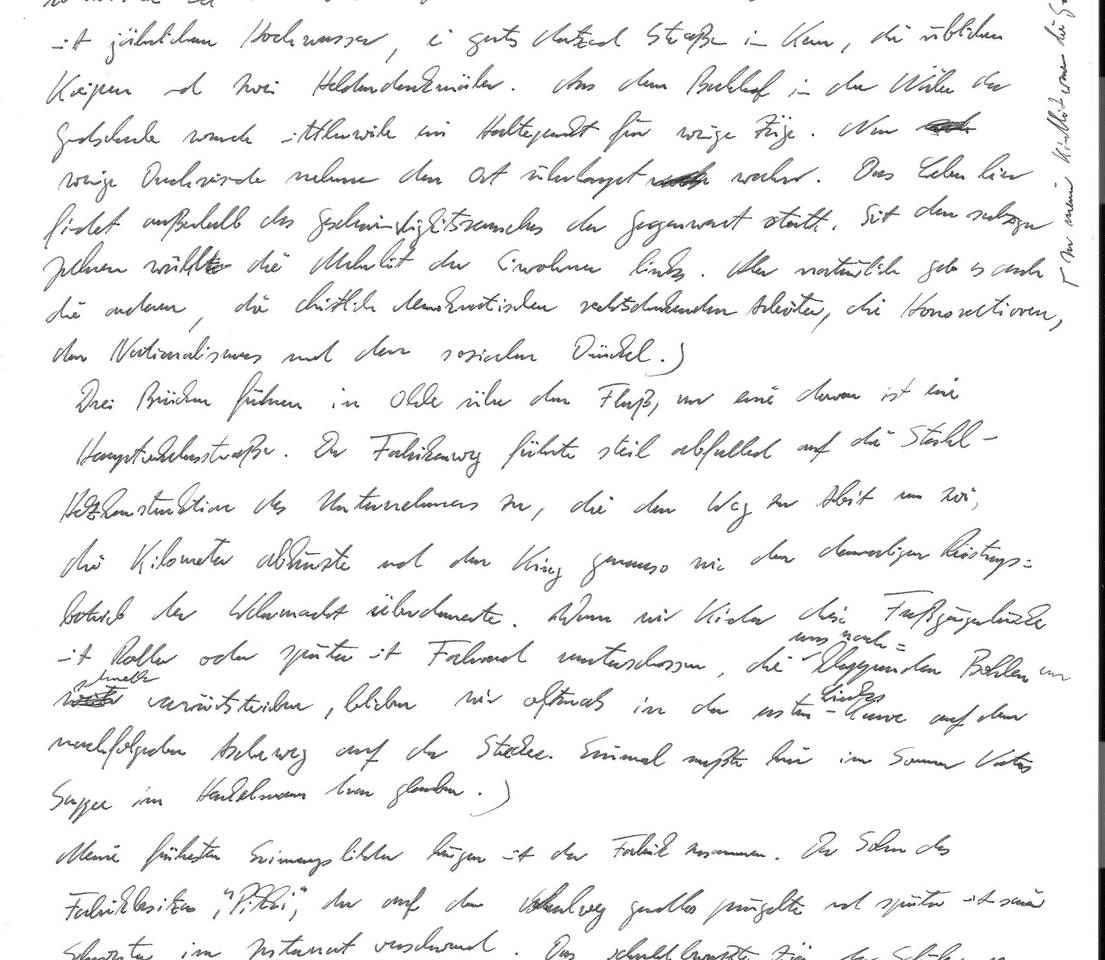 mit jährlichem Hochwasser, ein gutes Dutzend Straßen im Kern, die üblichen
Kneipen und zwei Heldendenkmäler. Aus dem Bahnhof in der Nähe der
wurde mittlerweile ein Haltepunkt für wenige Züge. Nur
wenige Durchreisende nehmen den Ort überhaupt wahr. Das Leben hier
findet außerhalb des Geschwindigkeitsrausches der Gegenwart statt. Seit den sechziger
Jahren wählt die Mehrheit der Einwohner links. Aber natürlich gab es auch
die anderen, die christlich demokratischen rechtsdenkenden Arbeiter, die Honoratioren,
den Nationalismus und den sozialen Dünkel.)
Drei Brücken führen in Olde über den Fluß, nur eine davon ist eine
Hauptverkehrsstraße. Der Fabrikenweg führte steil abfallend auf die Stahl-
Holzkonstruktion des Unternehmens zu, die den Weg zur Arbeit um zwei,
drei Kilometer abkürzte und den Krieg genauso wie den damaligen Rüstungs=
betrieb der Wehrmacht überdauerte. Wenn wir Kinder diese Fußgängerbrücke
mit Roller oder später mit Fahrrad unterschossen, die klappernden Bohlen uns nach=
schnell vorwärtstrieben, blieben wir oftmals in der ersten Links-Kurve auf dem
nachfolgenden Ascheweg auf der Strecke. Einmal mußte hier im Sommer Vaters
Suppe im Henkelmann dran glauben.)
Meine frühesten Erinnerungsbilder hängen mit der Fabrik zusammen. Der Sohn des
Fabrikbesitzers, "Pitti", der auf dem Schulweg gnadenlos prügelte und später mit seiner
Schwester im Internat verschwand. Das
In meine Kindheit